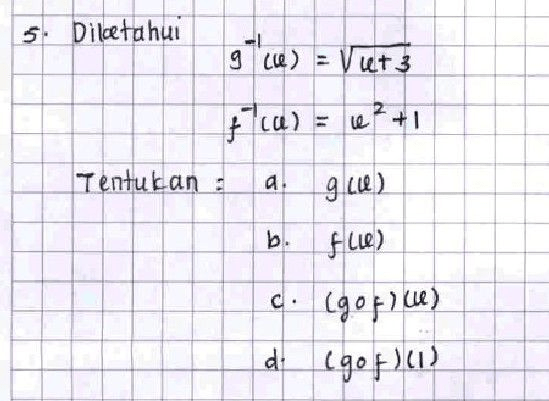 5. Diketahui
g⁻¹(x) = √x+3
f⁻¹(x) = x² + 1
Tentukan : a. g(x)
b. f(x)
c. (gof)(x)
d. (gof)(1)